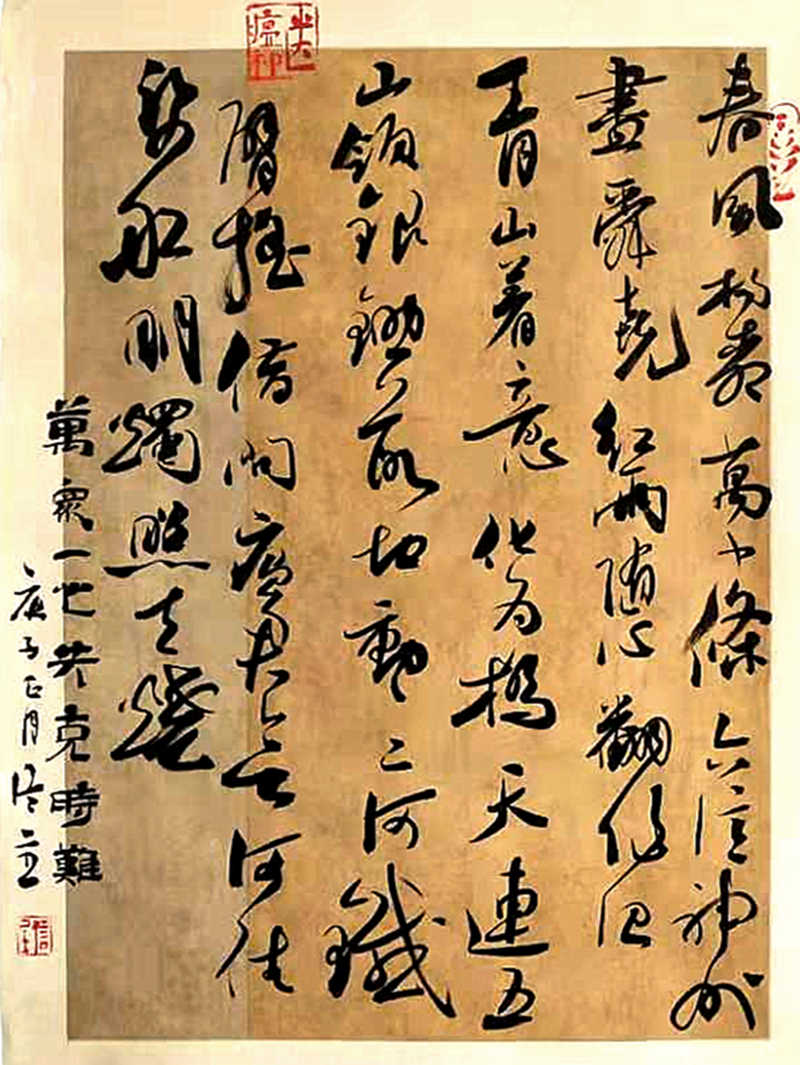 春風楊柳萬千條六億神州
盡舜堯紅雨隨心翻作浪
青山着意化为橋天連五
嶺銀鋤落地動三河鐵
臂搖借問瘟君欲何往
紙船明燭照天燒
萬眾一心共克時難
庚子正月